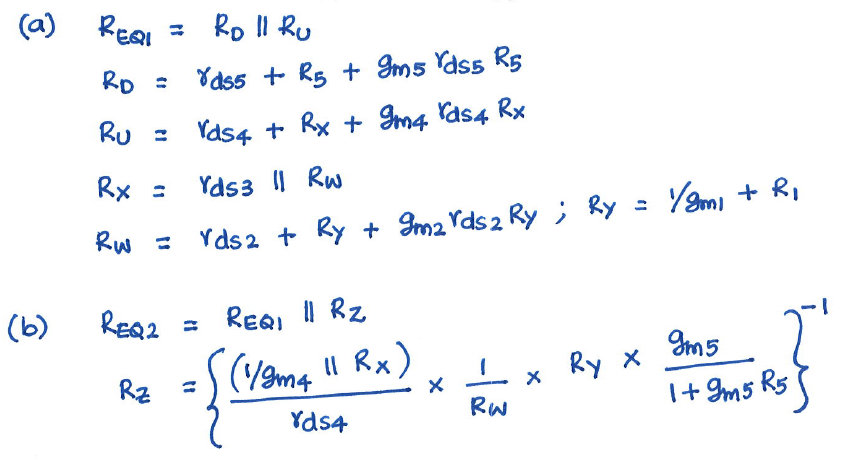 (a) REQ1 = RD || RU
RD = rds5 + R5 + gm5 rds5 R5
RU = rds4 + RX + gm4 rds4 RX
RX = rds3 || RW
RW = rds2 + RY + gm2 rds2 RY ; RY = 1/gm1 + R1
(b) REQ2 = REQ1 || RZ
RZ = { (1/gm4 || RX) / rds4 × 1 / RW × RY × gm5 / 1 + gm5 R5 }^-1